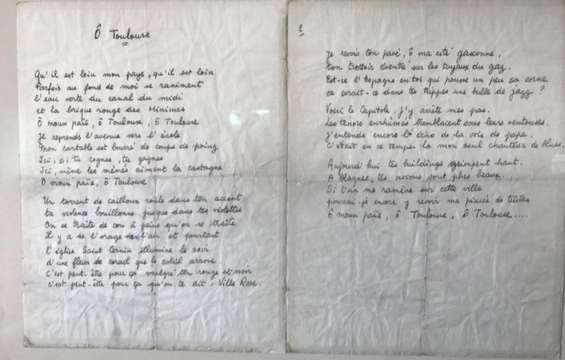 Ô Toulouse
Qu'il est loin mon pays, qu'il est loin
Parfois au fond de moi se raniment
l'eau verte du canal du midi
et la brique rouge des Minimes
Ô moun païs, ô Toulouse, ô Toulouse
Je reprends l'avenue vers l'école
Mon cartable est bourré de coups de poing
Ici, si tu cognes, tu gagnes
Ici, même les mémés aiment la castagne
O moun païs, ô Toulouse
Un torrent de cailloux roule dans ton accent
Ta violence bouillonne jusque dans tes violettes
On se traite de con à peine qu'on se traite
Il y a de l'orage dans l'air et pourtant
l'église Saint Sernin illumine le soir
d'une fleur de corail que le soleil arrose
C'est peut-être pour ça malgré ton rouge et noir
c'est peut-être pour ça qu'on te dit, Ville Rose.
2
Je revois ton pavé, ô ma cité gasconne,
ton trottoir éventré sur les tuyaux du gaz.
Est-ce l'Espagne en toi qui pousse un peu sa corne
ou serait-ce dans tes tripes une bulle de jazz ?
Voici le Capitole, j'y arrête mes pas.
Les ténors enrhumés tremblaient sous leurs ventouses.
J'entends encore l'écho de la voix de papa.
C'était en ce temps là mon seul chanteur de blues.
Aujourd'hui tes buildings grimpent haut.
A Blagnac, tes avions sont plus beaux.
Si l'un me ramène sur cette ville
pourrai-je encore y revoir ma pincée de tuiles
Ô moun païs, ô Toulouse, ô Toulouse....